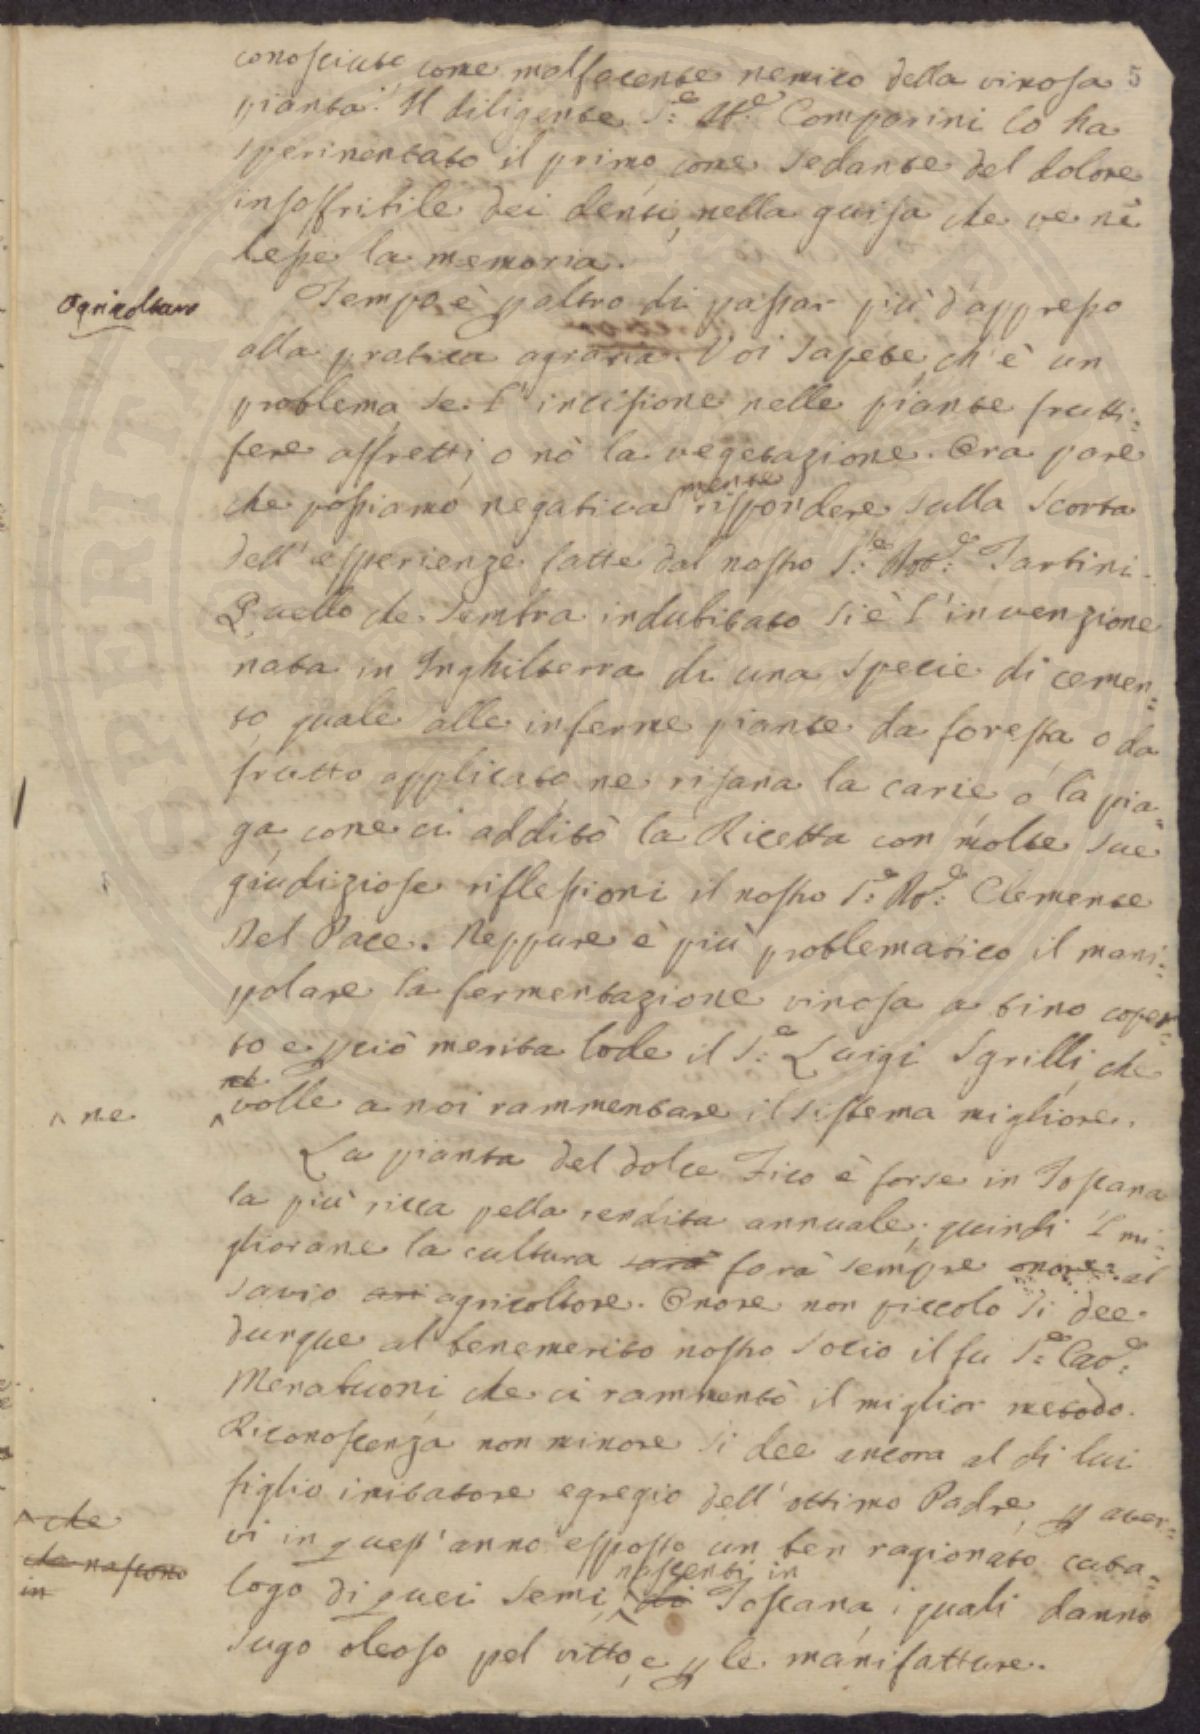 5
conosciute come malfacente nemico della vinosa
pianta. Il diligente S.e Comparini lo ha
sperimentato il primo come sedante del dolore
insoffribile dei denti, nella guisa che ve nè
lesse la memoria.
Agricoltura
Tempo è p altro di passar più d'appresso
alla pratica agraria. Voi sapete, ch'è un
problema, se l'incisione nelle piante frutti=
fere affretti, o nò la vegetazione. Ora pare
che possiamo negativamente rispondere sulla scorta
dell'esperienze fatte dal nostro S.e Tartini.
Quello che sembra indubitato si è l'invenzione
nata in Inghilterra di una specie di cemen=
to, quale alle inferme piante da foresta, o da
frutto applicato, ne risana la carie, o la pia=
ga, come ci additò la Ricetta con molte sue
giudiziose riflessioni il nostro S.e Clemente
Del Pace. Neppure è più problematico il mani=
polare la fermentazione vinosa a tino coper=
to e pciò merita lode il S.e Luigi Sgrilli, che
^ ne
ne
^ volle a noi rammentare il sistema migliore.
La pianta del dolce Fico è forse in Toscana
la più ricca pella rendita annuale; quindi l mi=
gliorane la cultura sarà farà sempre onore al
savio agricoltore. Onore non piccolo si dee
dunque al benemerito nostro Socio il fu S.e Cav.e
Merabuoni che ci rammentò il miglior metodo.
Riconoscenza non minore si dee ancora al di lui
figlio imitatore egregio dell'ottimo Padre, p aver=
vi in quest'anno esposto un ben ragionato cata=
^ che
che nascono
in
nascenti in
logo di quei semi, ^ di Toscana, i quali danno
sugo oleoso pel vitto, e p le manifatture.